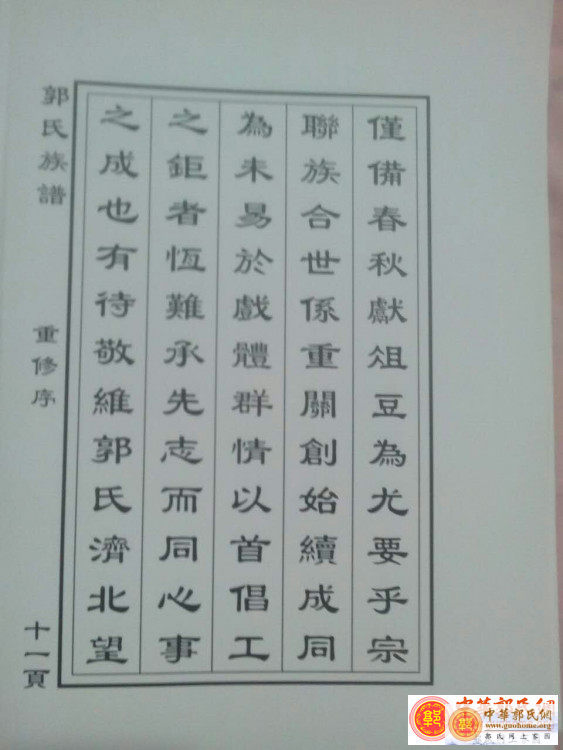 僅備春秋獻俎豆為尤要乎宗
聯族合世係重關創始續成同
為未易於戲體群情以首倡工
之鉅者恆難承先志而同心事
之成也有待敬維郭氏濟北望
郭氏族譜
重修序
十一頁
中華郭氏網
www.guohome.org
郭氏网上家园